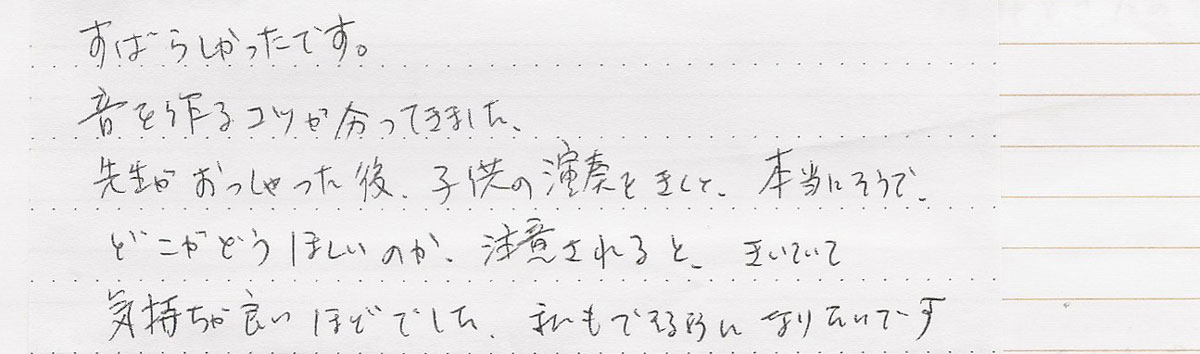 すばらしかったです。
音を作るコツが分ってきました、
先生がおっしゃった後、子供の演奏をきくと、本当にそうで、
どこがどうほしいのか、注意されると、きいていて
気持ちが良いほどでした、私もできる様になりたいです